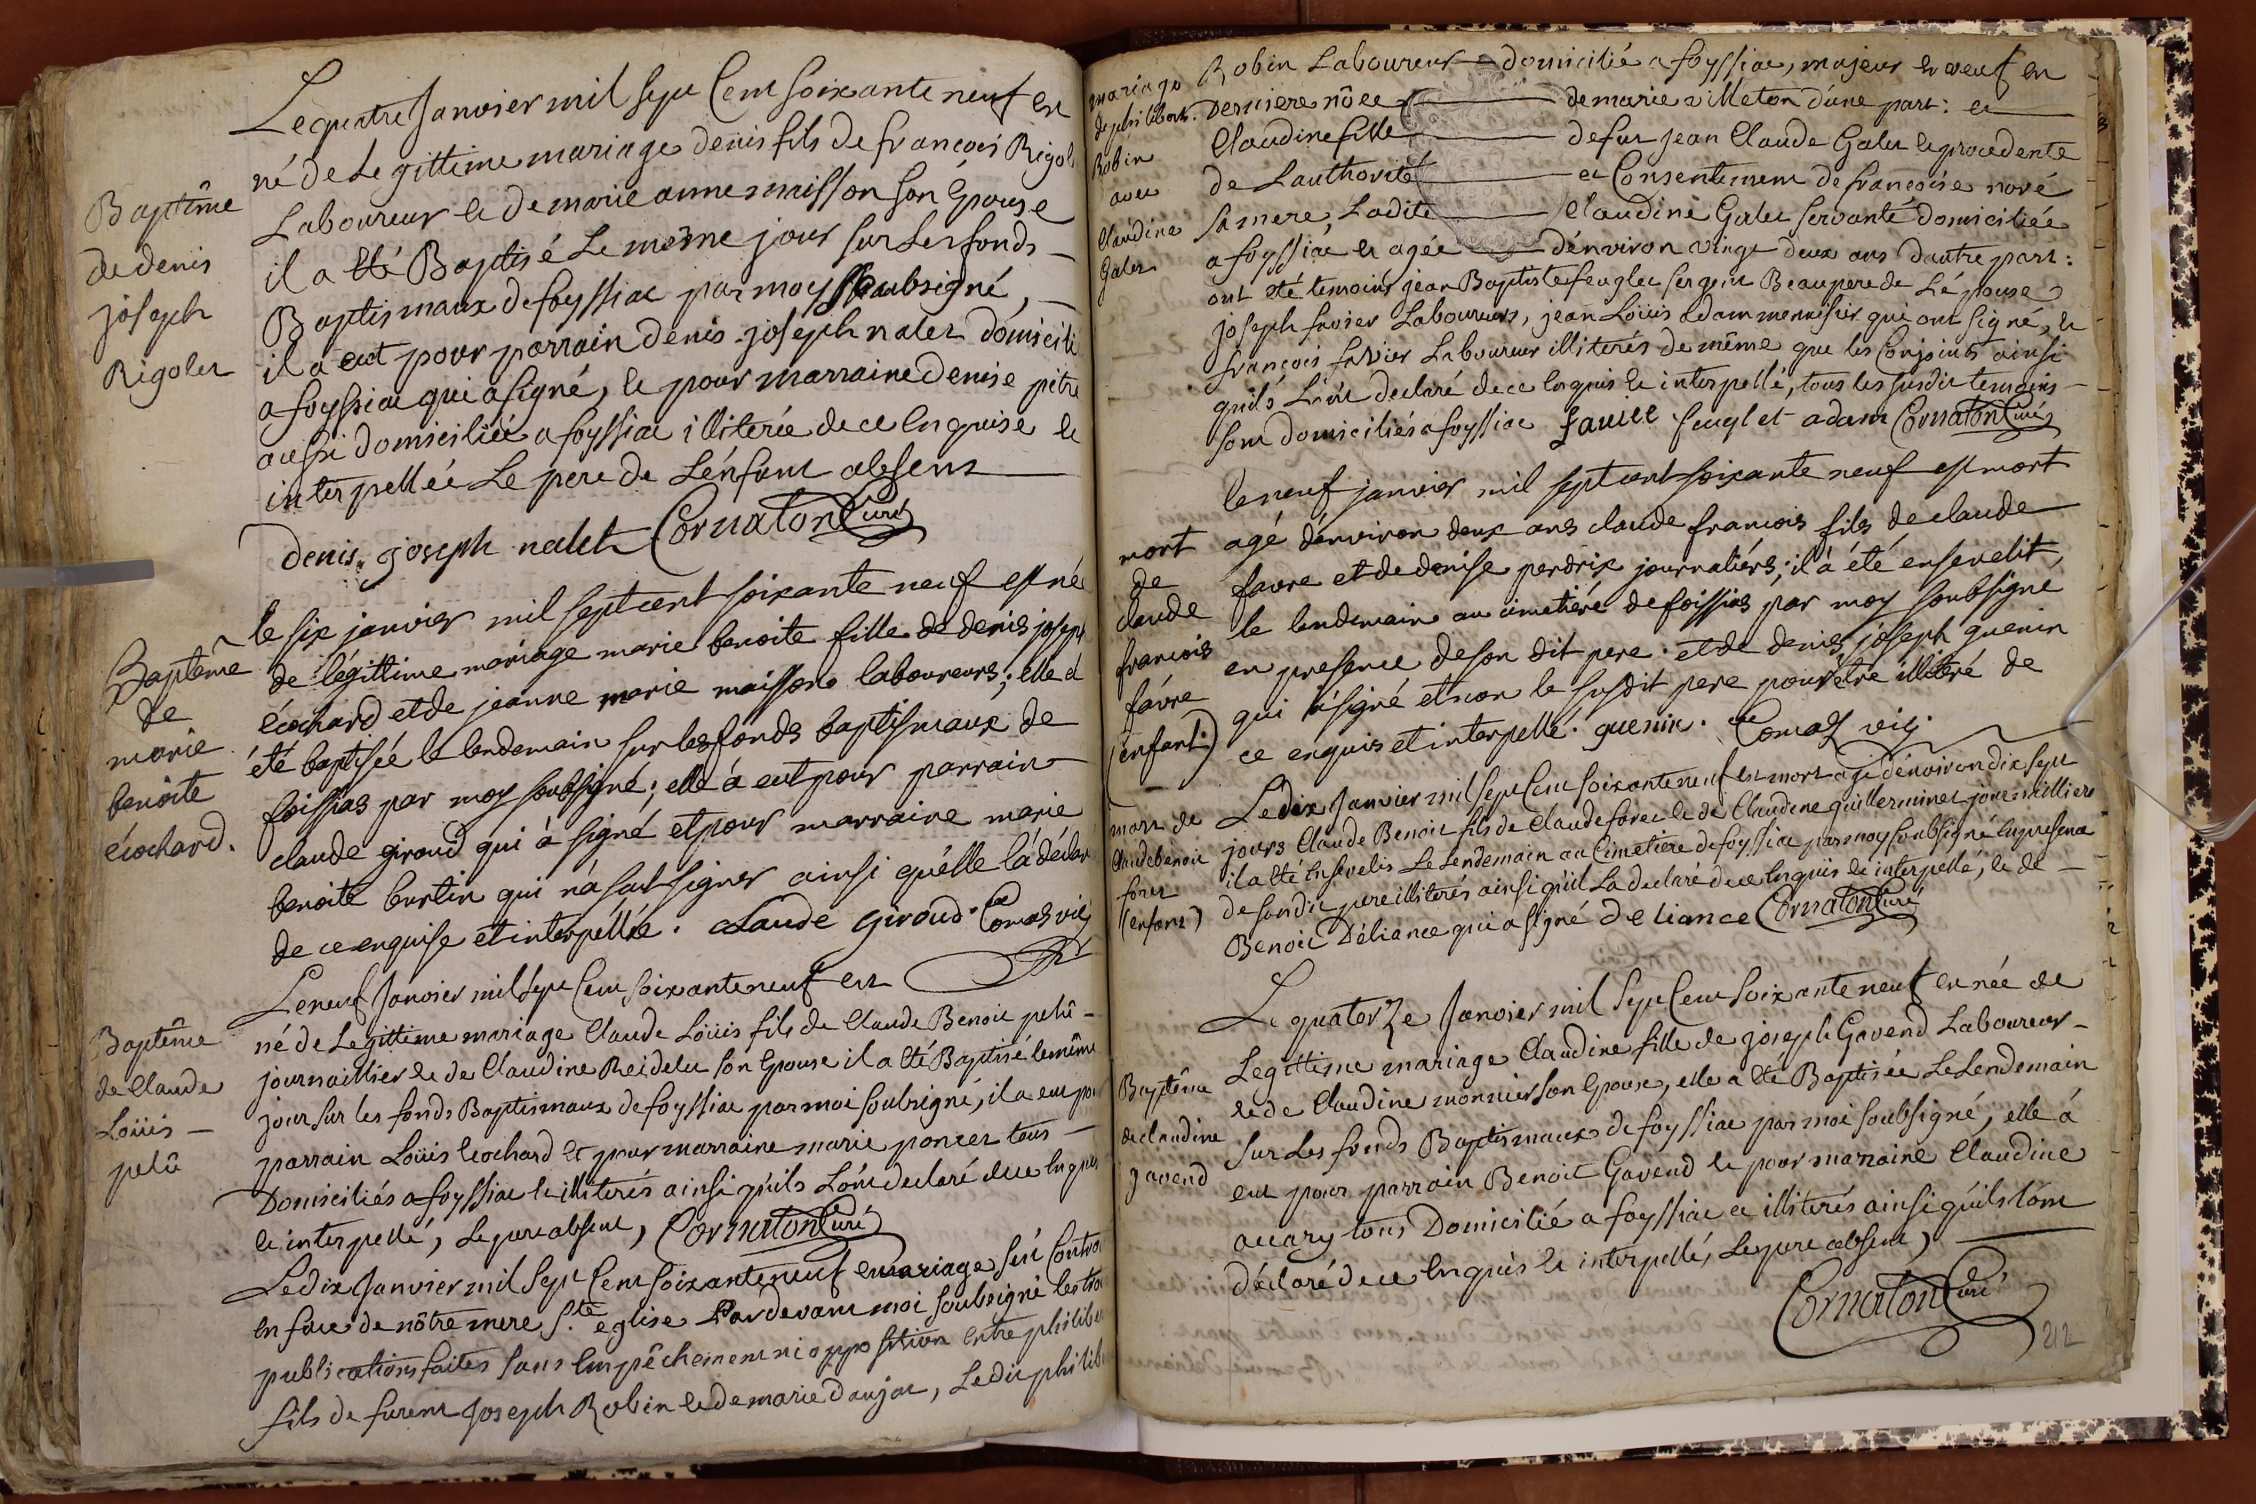 Baptême
de denis
joseph
Rigolet
Le quatre Janvier mil sept Cent soixante neuf est
né de Legittime mariage denis fils de françois Rigol
Laboureur et de marie anne maisson son Epouse
il a Eté Baptisé Le même jour sur Les fonds
Baptismaux de foyssiac par moy soubsigné,
il a eut pour parrain denis joseph nalet domicili
a foyssiac qui a signé, et pour marraine denise pitre
aussi domiciliée a foyssiac illiterée de ce Enquise et
interpellée Le pere de L'énfant absent
denis joseph nalet Cornaton Curé
Baptême
de
marie
benoite
écochard.
le six janvier mil sept cent soixante neuf est né
de légittime mariage marie benoite fille de denis joseph
écochard et de jeanne marie maisson laboureurs; elle à
été baptisée le lendemain sur les fonds baptismaux de
foissias par moy soubsigné; elle à eut pour parrain
claude giroud qui à signé et pour marraine marie
benoite bertin qui n'a sçut signer ainsi qu'elle l'a déclar
de ce enquise et interpéllée. Claude giroud. Comas vic
Baptême
de Claude
Loüis
petû
Le neuf Janvier mil sept Cent soixante neuf est
né de Legittime mariage Claude Loüis fils de Claude Benoit petû
journaillier et de Claudine Reidelet son Epouse il a Eté Baptisé le même
jour sur les fonds Baptismaux de foyssiac par moi soubsigné, il a eut pou
parrain Loüis Ecochard et pour marraine marie poncet tous
Domiciliés a foyssiac et illiterés ainsi qu'ils L'ont declaré de ce Enquis
et interpellé, Le pere absent, Cornaton Curé
Le dix Janvier mil sept Cent soixante neuf mariage fut Contra
En face de nôtre mere S.te église Pardevant moi soubsigné les trois
publications faites sans Empêchement ni opposition Entre philiber
fils de furent Joseph Robin et de marie Daujat, Ledit philib
mariage
de philibert
Robin
avec
Claudine
Galet
Robin Laboureur domicilié a foyssiac, majeur et veuf en
Derniere nôce de marie villeton d'une part: et
Claudine fille de fut Jean Claude Galet le procedente
de L'authorité et Consentement de françoise noré
sa mere, Ladite Claudine Galet servante domiciliée
a foyssiac et agée d'énviron vingt deux ans d'autre part:
ont été temoins jean Baptiste feuglet sergent Beaupere de L'épouse
joseph favier Laboureurs, jean Loüis adam menuisier qui ont signé, et
françois favier Laboureur illiterés de même que les Conjoints ainsi
qu'ils L'ont declaré de ce Enquis et interpellé, tous les susdit temoins
sont domiciliés a foyssiac favier feuglet adam Cornaton Curé
mort
de
claude
francois
favre
(enfant)
le neuf janvier mil sept cent soixante neuf est mort
agé d'énviron deux ans claude francois fils de claude
favre et de denise perdrix journaliérs; il à été ensevelit
le lendemain au cimetiére de foissias par moy soubsigne
en presence de son dit pere. et de denis joseph guenin
qui à signé et non le susdit pere pour être illitéré de
ce enquis et interpellé. guenin. Comas vic.
mort de
Claude benoit
foret
(enfant)
Le dix Janvier mil sept Cent soixante neuf est mort agé d'énviron dix sept
jours Claude Benoit fils de Claude foret et de Claudine guillerminet journailliers
il a Eté Ensevelis Le Lendemain au Cimetiere de foyssiac par moy soubsigné En presence
de son dit pere illiterés ainsi qu'il La declaré de ce Enquis et interpellé, et de
Benoit Déliance qui a signé de liance Cornaton Curé
Baptême
de claudine
gavend
Le quatorze Janvier mil sept Cent soixante neuf est née de
Legittime mariage Claudine fille de joseph Gavend Laboureur
et de Claudine monnier son Epouse, elle a Eté Baptisée Le Lendemain
sur Les fonds Baptismaux de foyssiac par moi soubsigné, elle à
eut pour parrain Benoit Gavend et pour marraine Claudine
auary tous Domicilié a foyssiac et illiterés ainsi qu'ils L'ont
déclaré de ce Enquis et interpellé, Le pere absent,
Cornaton Curé
212